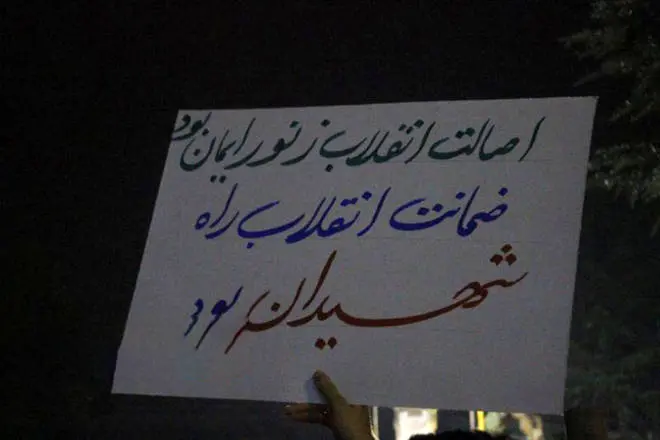 اصالت انقلاب ز نور ایمان بود
ضمانت انقلاب راه
شهیدان بود